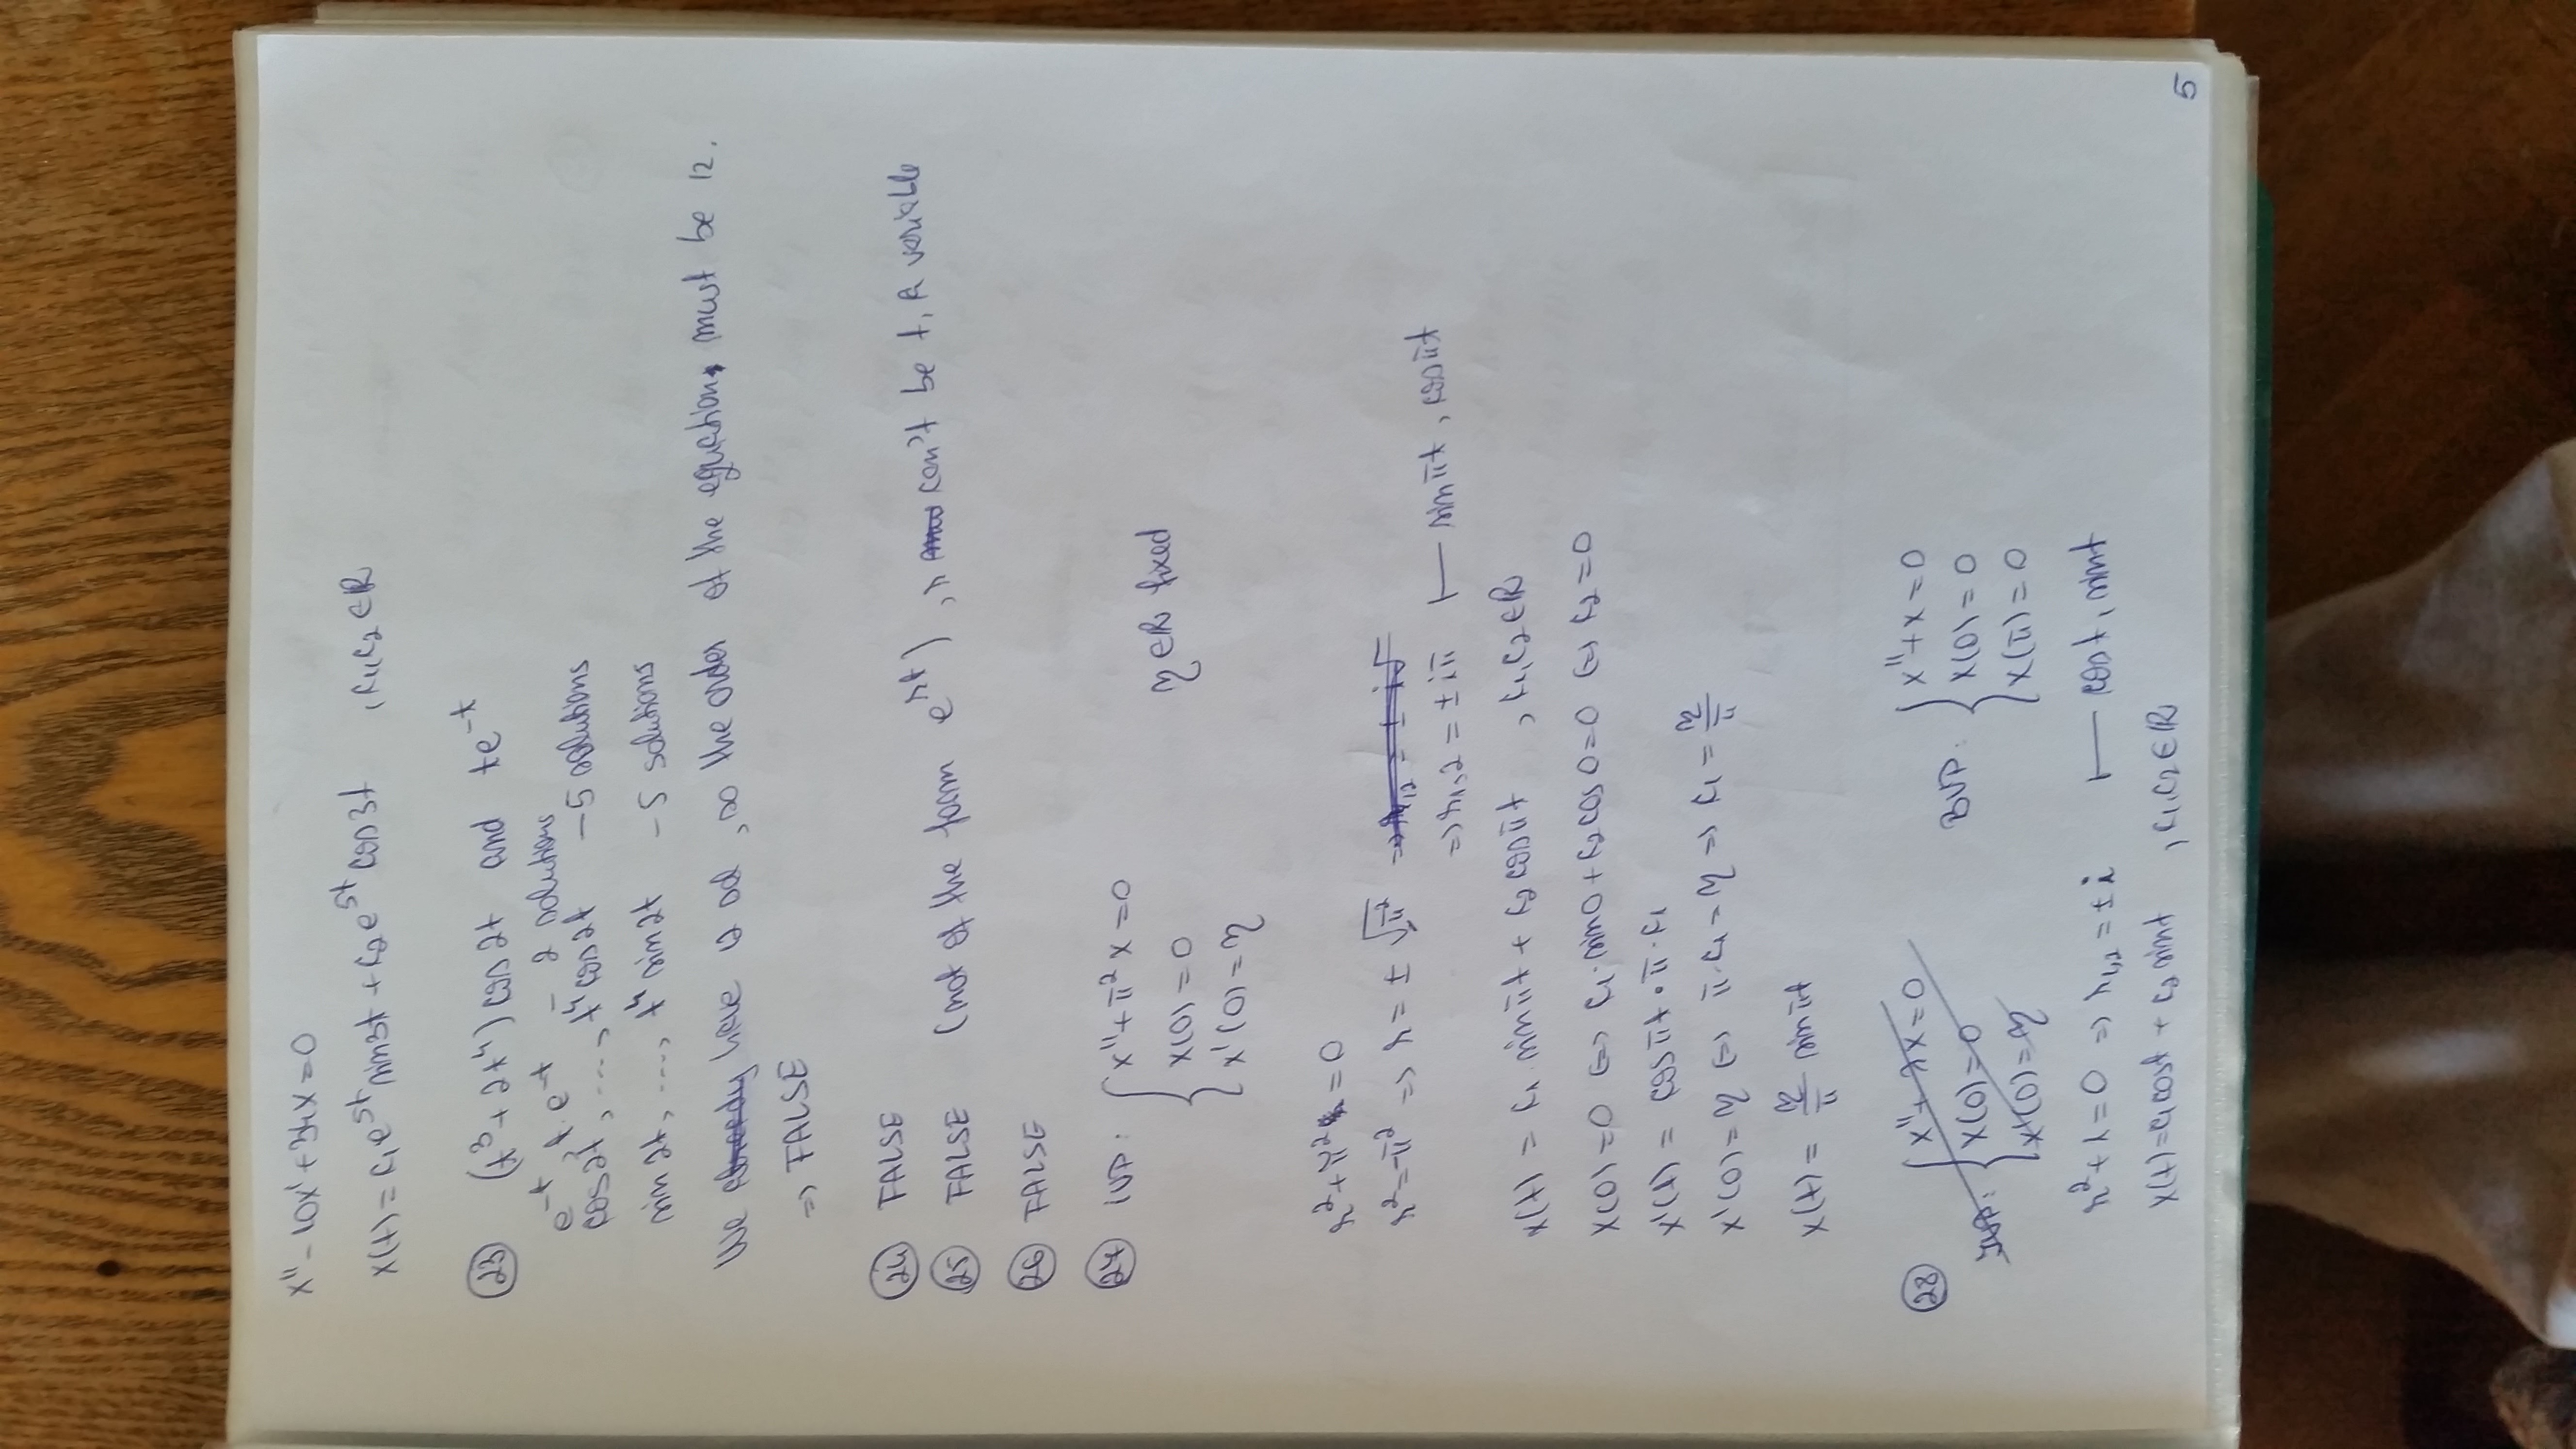 x'' - 10x' + 34x = 0
x(t) = c₁e^{5t} sin3t + c₂e^{5t} cos3t , c₁,c₂ ∈ ℝ
(23) (t³ + 2t⁴) cos 2t and te^{-t}
e^{-t}, t·e^{-t} - 2 solutions
cos2t, ..., t⁴cos2t - 5 solutions
sin 2t, ..., t⁴ sin2t - 5 solutions
We already have 12 sol, so the order of the equation must be 12.
=> FALSE
(24) FALSE
(25) FALSE (not of the form e^{rt}), r can't be t, a variable
(26) FALSE
(27) IVP: { x'' + π² x = 0
x(0) = 0 η ∈ ℝ fixed
x'(0) = η
r² + π² = 0
r² = -π² => r = ± √π² => r₁₂ = ± i√
=> r₁,₂ = ± iπ ⊢ sin πt, cos πt
x(t) = c₁ · sin πt + c₂ cos πt , c₁,c₂ ∈ ℝ
x(0) = 0 <=> c₁ · sin0 + c₂ cos 0 = 0 <=> c₂ = 0
x'(t) = cos πt · π · c₁
x'(0) = η <=> π · c₁ = η => c₁ = η/π
x(t) = η/π sin πt
(28) IVP: { x'' + λx = 0 BVP: { x'' + x = 0
x(0) = 0 x(0) = 0
x'(0) = η x(π) = 0
r² + 1 = 0 => r₁,₂ = ± i ⊢ cos t, sin t
x(t) = c₁ cost + c₂ sint , c₁,c₂ ∈ ℝ
5